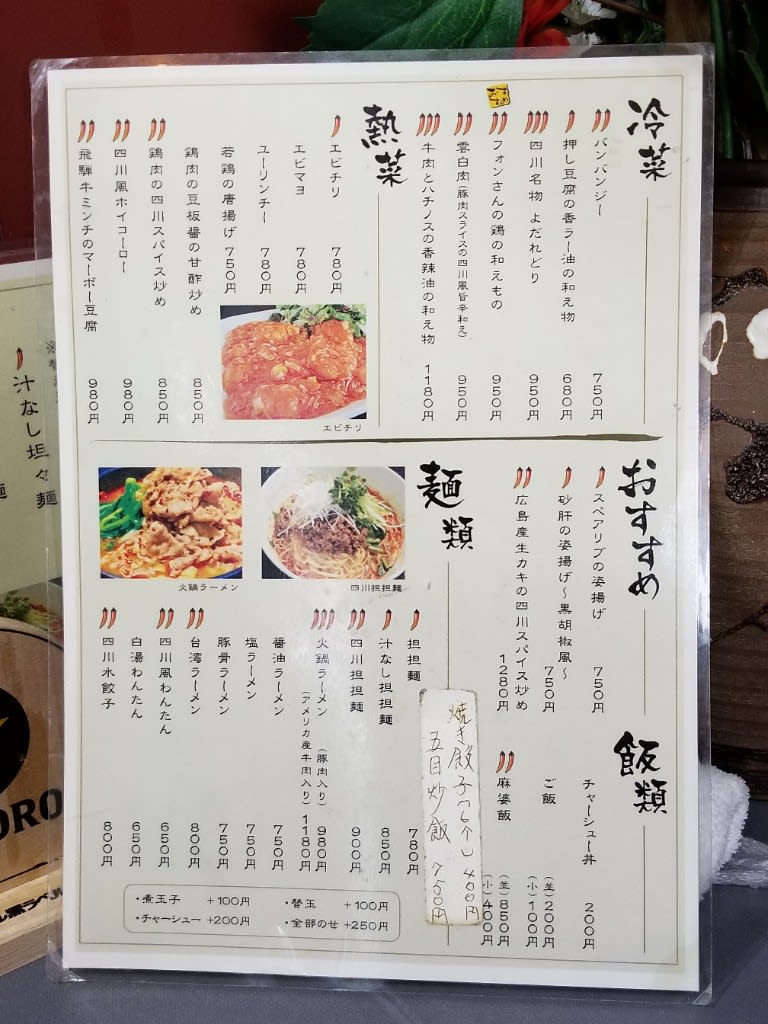 冷菜
バンバンジー 750円
押し豆腐の香ラー油の和え物 680円
四川名物 よだれどり 950円
フォンさんの鶏の和えもの 950円
雲白肉(豚肉スライスの四川風旨辛和え) 950円
牛肉とハチノスの香辣油の和え物 1180円
熱菜
エビチリ 780円
エビマヨ 780円
ユーリンチー 780円
若鶏の唐揚げ 750円
鶏肉の豆板醤の甘酢炒め 850円
鶏肉の四川スパイス炒め 850円
四川風ホイコーロー 980円
飛騨牛ミンチのマーボー豆腐 980円
エビチリ
おすすめ
スペアリブの姿揚げ 750円
砂肝の姿揚げ～黒胡椒風～ 750円
広島産生カキの四川スパイス炒め 1280円
飯類
チャーシュー丼 200円
ご飯 (並)200円
(小)100円
麻婆飯 (並)850円
(小)400円
麺類
四川担担麺
火鍋ラーメン
担担麺 780円
汁なし担担麺 850円
四川担担麺 900円
火鍋ラーメン (豚肉入り) 980円
(アメリカ産牛肉入り) 1180円
醤油ラーメン 750円
塩ラーメン 750円
豚骨ラーメン 750円
台湾ラーメン 800円
四川風わんたん 650円
白湯わんたん 650円
四川水餃子 800円
焼き餃子(6个) 400円
五目炒飯 750円
・煮玉子 +100円
・替玉 +100円
・チャーシュー +200円
・全部のせ +250円
汁なし坦々麺